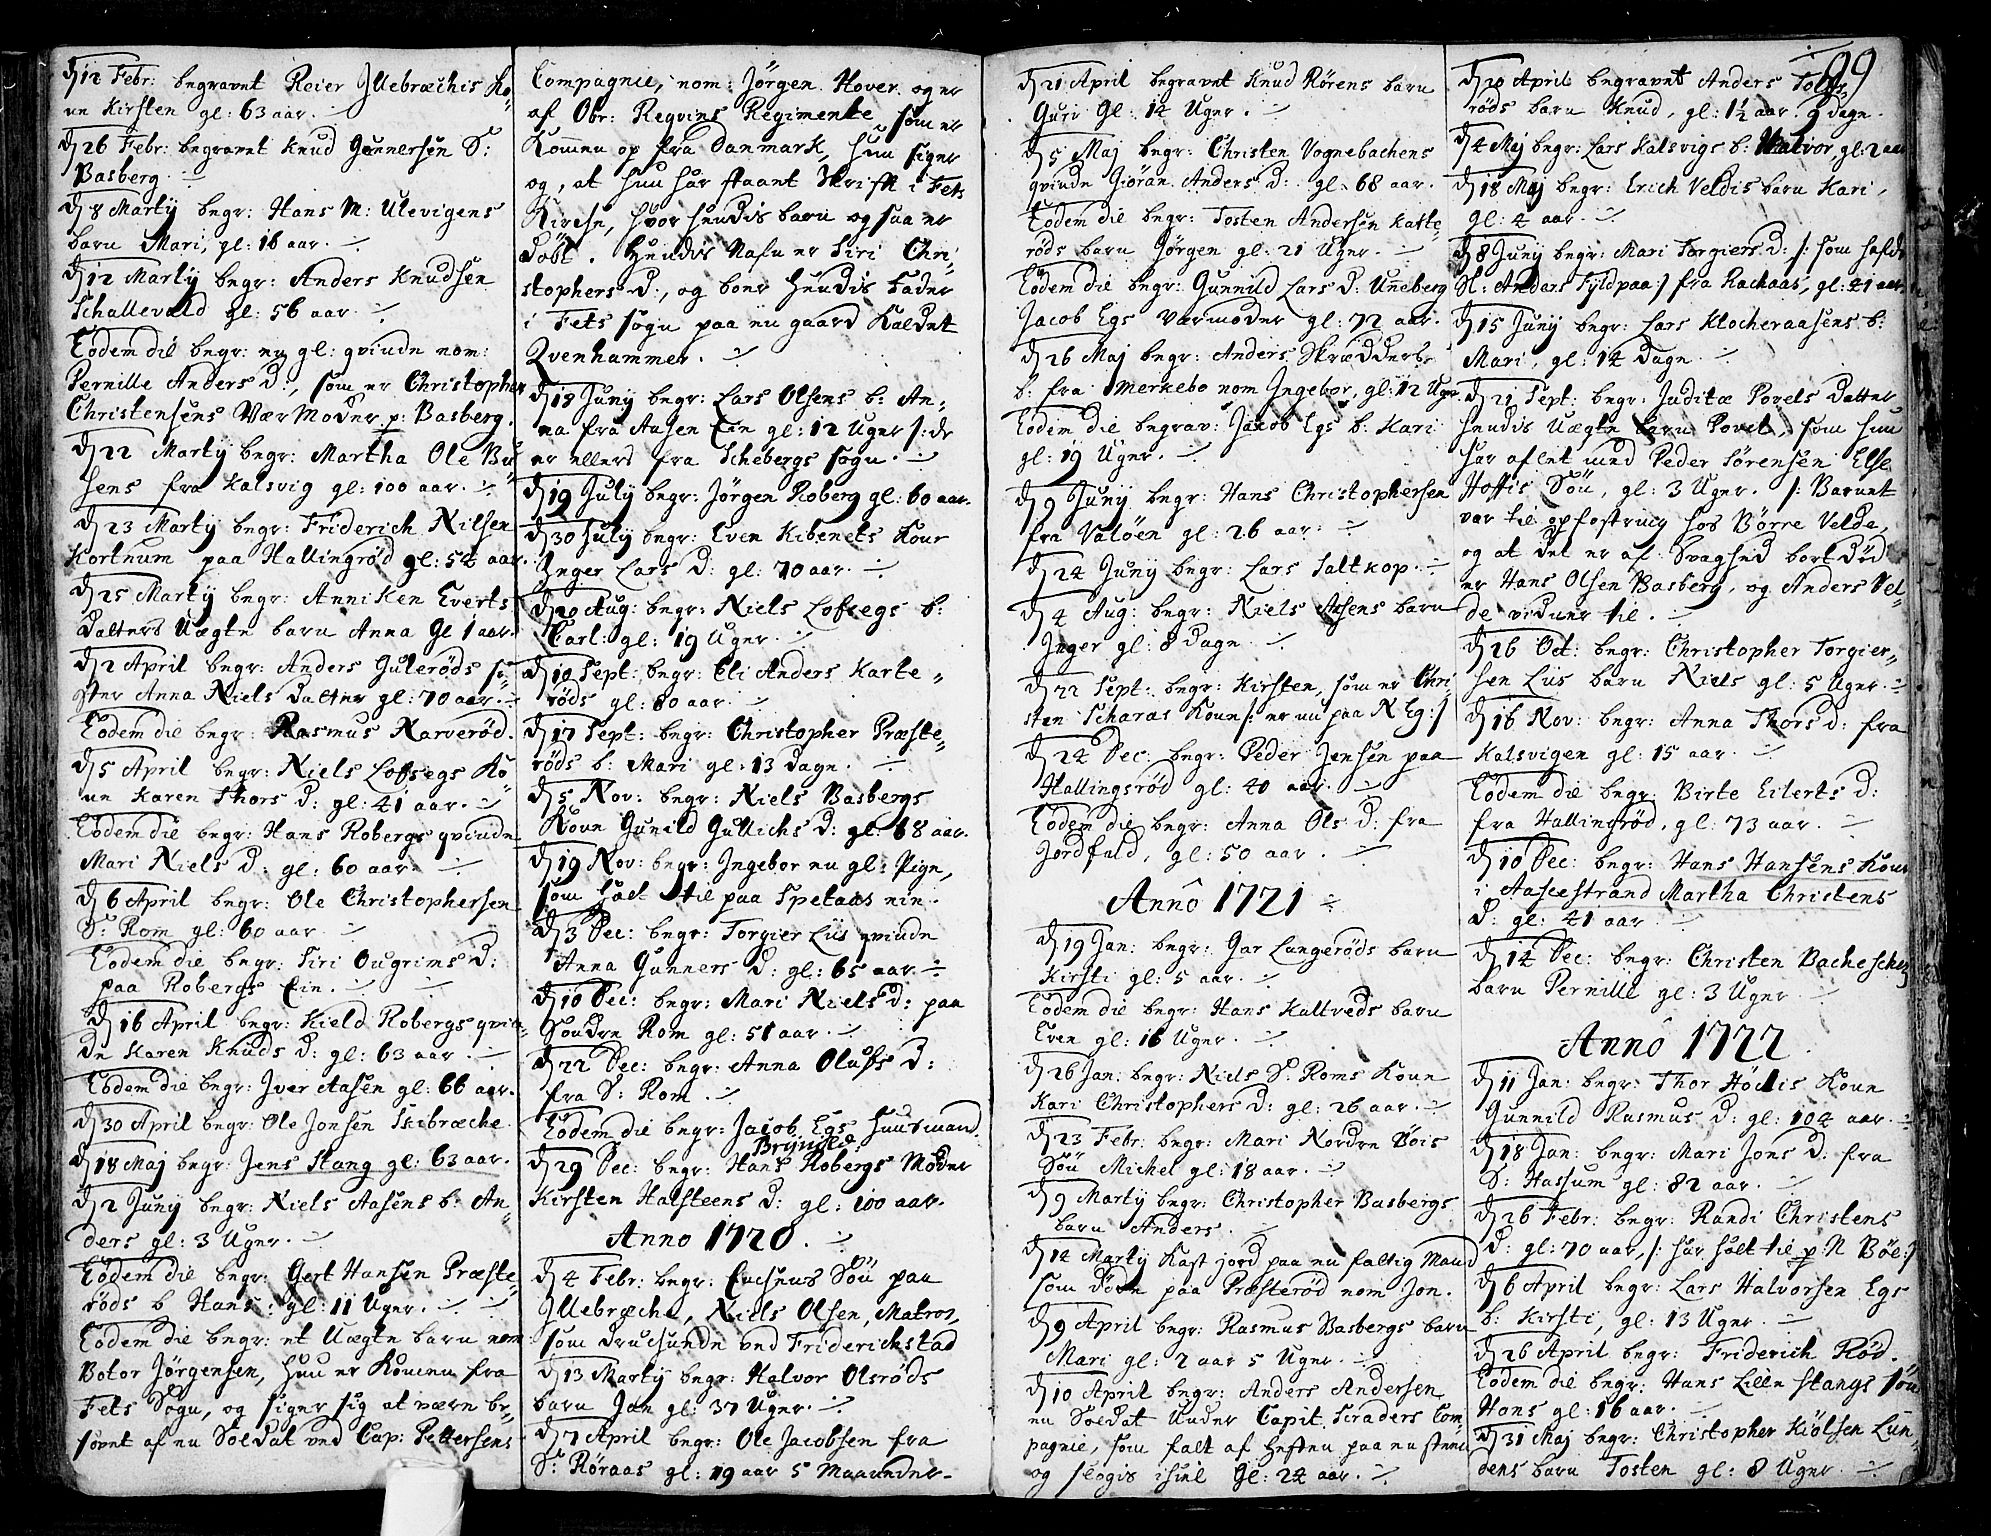 d 12 Febr: begravet Reier Jllebræchis Ko-
ne Kirsten gl: 63 aar.
d 26 Febr: begravet Knud Gunnersen S:
Basberg.
d 8 Martÿ begr: Hans M: Ulevigens
barn Mari, gl: 16 aar.
d 12 Martÿ begr: Anders Knudsen
Schallevald gl: 56 aar.
Eodem die begr: en gl: qvinde nom:
Pernille Anders d:, som er Christopher
Christensens Vær Moder p: Basberg.
d 22 Martÿ begr: Martha Ole Bu
sens fra Kalsvig gl: 100 aar.
d 23 Martÿ begr: Friderich Nilsen
Kortnum paa Hallingrød gl: 54 aar.
d 25 Martÿ begr: Anniken Everts
datters Uægte barn Anna gl 1 aar.
d 2 April begr: Anders Gulerøds sø-
ster Anna Niels datter gl: 70 aar.
Eodem die begr: Rasmus Narverød.
d 5 April begr: Niels Lofsegs Ko
ne Karen Thors d: gl: 41 aar.
Eodem die begr: Hans Robergs qvinde
Mari Niels d: gl: 60 aar.
d 6 April begr: Ole Christophersen
S: Rom gl: 60 aar.
Eodem die begr: Siri Ougrims d:
paa Robergs Eie.
d 16 April begr: Kield Robergs qvin-
de Karen Knuds d: gl: 63 aar.
Eodem die begr: Jver Aasen gl: 66 aar.
d 30 April begr: Ole Jonsen Skibræche
d 18 Maj begr: Jens Stang gl: 63 aar.
d 2 Junÿ begr: Niels Aasens b: An-
ders gl: 3 Uger.
Eodem die begr: Gert Hansen Præste-
røds b Hans: gl: 11 Uger.
Eodem die begr: et Uægte barn nom
Botor Jørgensen, hun er kommen fra
Fets Sogn, og siger sig at være be-
sovet af en Soldat ved Cap: Pettersens
Compagnie, nom: Jörgen Hover og er
af Obr: Reqvins Regimente som er
Kommen op fra Danmark, hun siger
og, at hun har staaet Skrift i Fets
Kirche, hvor hendis barn og saa er
døbt. Hendis Nafn er Siri Chri-
stophers d:, og boer hendis Fader
i Fets sogn paa en gaard kaldet
Qvenhammer.
d 18 Junÿ begr: Lars Olsens b: An-
na fra Aasen Eie gl: 12 Uger /: de
er ellers fra Schebergs sogn.
d 19 Julÿ begr: Jörgen Roberg gl: 60 aar.
d 30 Julÿ begr: Even Kibenets Kone
Jnger Lars d: gl: 70 aar.
d 20 Aug: begr: Niels Lofsegs b:
Carl: gl: 19 Uger.
d 10 Sept: begr: Eli Anders Karte-
røds gl: 80 aar.
d 17 Sept: begr: Christopher Præste-
røds b: Mari gl: 13 dage.
d 5 Nov: begr: Niels Basbergs
Kone Gunild Gullichs d: gl: 68 aar.
d 19 Nov: begr: Jngebor en gl: Pige,
som holt til paa Spetaas eie.
d 3 Dec: begr: Torgier Liis qvinde
Anna Gunners d: gl: 65 aar
d 10 Dec: begr: Mari Niels d: paa
Søndre Rom gl: 51 aar.
d 22 Dec: begr: Anna Olufs d:
fra S: Rom.
Eodem die begr: Jacob Egs Huusmand
Brynild
d 29 Dec: begr: Hans Robergs Moder
Kirsten Halsteens d: gl: 100 aar.
Anno 1720.
d 4 Febr: begr: Enchens Sön paa
Jllebræche, Niels Olsen, Matros,
som druchnede ved Friderichstad
d 13 Martÿ begr: Halvor Olsrøds
barn Jan gl: 37 Uger.
d 7 April begr: Ole Jacobsen fra
S: Røraas gl: 19 aar 5 Maaneder
d 21 April begravet Knud Rörens barn
Guri Gl: 14 Uger.
d 5 Maj begr: Christen Vognebachens
qvinde Giöran Anders d: gl: 68 aar.
Eodem die begr: Tosten Andersen Katte-
røds barn Jørgen gl: 21 Uger.
Eodem die begr: Gunnild Lars d: Uneberg
Jacob Egs Værmoder gl: 72 aar.
d 26 Maj begr: Anders Skrædders
b: fra Smerkebo nom Jngebor, gl: 12 Uger
Eodem die begrav: Jacob Egs b: Kari
gl: 19 Uger.
d 9 Junÿ begr: Hans Christophersen
fra Valøen gl: 26 aar.
d 24 Junÿ begr: Lars Saltkop.
d 4 Aug: begr: Niels Aasens barn
Jnger gl: 8 dage.
d 22 Sept: begr: Kirsten, som er Chri-
sten Scharas Kone /: er nu paa N Eg:/
d 24 Dec: begr: Peder Jensen paa
Hallingsrød gl: 40 aar.
Eodem die begr: Anna Ols d: fra
Jordfald, gl: 50 aar.
Annô 1721
d 19 Jan: begr: Gar Langerøds barn
Kirsti gl: 5 aar.
Eodem die begr: Hans Kaltveds barn
Even gl: 16 Uger.
d 26 Jan: begr: Niels S: Roms Kone
Kari Christophers d: gl: 26 aar.
d 23 Febr: begr: Mari Nordre Böis
Sön Michel gl: 18 aar.
d 9 Martÿ begr: Christopher Basbergs
barn Anders.
d 14 Martÿ Kast jord paa en fattig Mand
som døde paa Præsterød nom Jon.
d 9 April begr: Rasmus Basbergs barn
Mari gl: 2 aar 5 Uger.
d 10 April begr: Anders Andersen
en Soldat under Capit. Scraders Com-
pagnie, som falt af Hesten paa en steen
og slogis ihiel gl: 24 aar.
99
d 20 April begravet Anders Tolfs-
røds barn Knud, gl: 1½ aar 9 dage.
d 4 Maj begr: Lars Kalsvigs b: Halvor, gl: 2 aar
d 18 Maj begr: Erich Veldis barn Kari,
gl: 4 aar.
d 8 Junÿ begr: Mari Torgiers d: /: som hafde
Sl: Anders Fyldpaa:/ fra Rachaas, gl: 41 aar.
d 15 Junÿ begr: Lars Klocheraasens b:
Mari, gl: 14 dage.
d 21 Sept: begr: Juditæ Povels datter
hendis Uægte barn Povel, som hun
har aflet med Peder Sørensen Else
Hoffis Sön, gl: 3 Uger. /: Barnet
var til opfostring hos Börre Velde,
og at det er af Svaghed bort död
er Hans Olsen Basberg, og Anders Vel-
de vidner til.
d 26 Oct: begr: Christopher Torgier-
sen Liis barn Niels gl: 5 Uger.
d 16 Nov: begr: Anna Thors d: fra
Kalsvigen gl: 15 aar.
Eodem die begr: Birte Eilerts d:
fra Hallingrød, gl: 73 aar.
d 10 Dec: begr: Hans Hansens Kone
i Aasgestrand Martha Christens
d: gl: 41 aar
d 14 Dec: begr: Christen Bachesches
barn Pernille gl: 3 Uger
Annô 1722.
d 11 Jan: begr: Thor Höchis Kone
Gunnild Rasmus d: gl: 104 aar.
d 18 Jan: begr: Mari Jons d: fra
S: Hassum gl: 82 aar.
d 26 Febr: begr: Randi Christens
d: gl: 70 aar, /: har holt til p: N Böe:/
d 6 April begr: Lars Halvorsen Egs
b: Kirsti, gl: 13 Uger.
d 26 April begr: Friderich Röd.
Eodem die begr: Hans Lille Stangs sön
Hans gl: 16 aar.
d 31 Maj begr: Christopher Kiölsen Lun-
dens barn Tosten gl: 8 Uger.